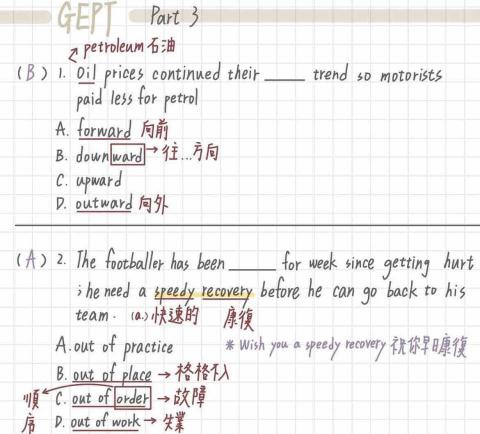 GEPT Part 3
petroleum 石油
(B) 1. Oil prices continued their ____ trend so motorists
paid less for petrol
A. forward 向前
B. downward → 往...方向
C. upward
D. outward 向外
(A) 2. The footballer has been ____ for week since getting hurt
; he need a speedy recovery before he can go back to his
team. (a.) 快速的 康復
A. out of practice * Wish you a speedy recovery 祝你早日康復
B. out of place → 格格不入
順序 C. out of order → 故障
D. out of work → 失業